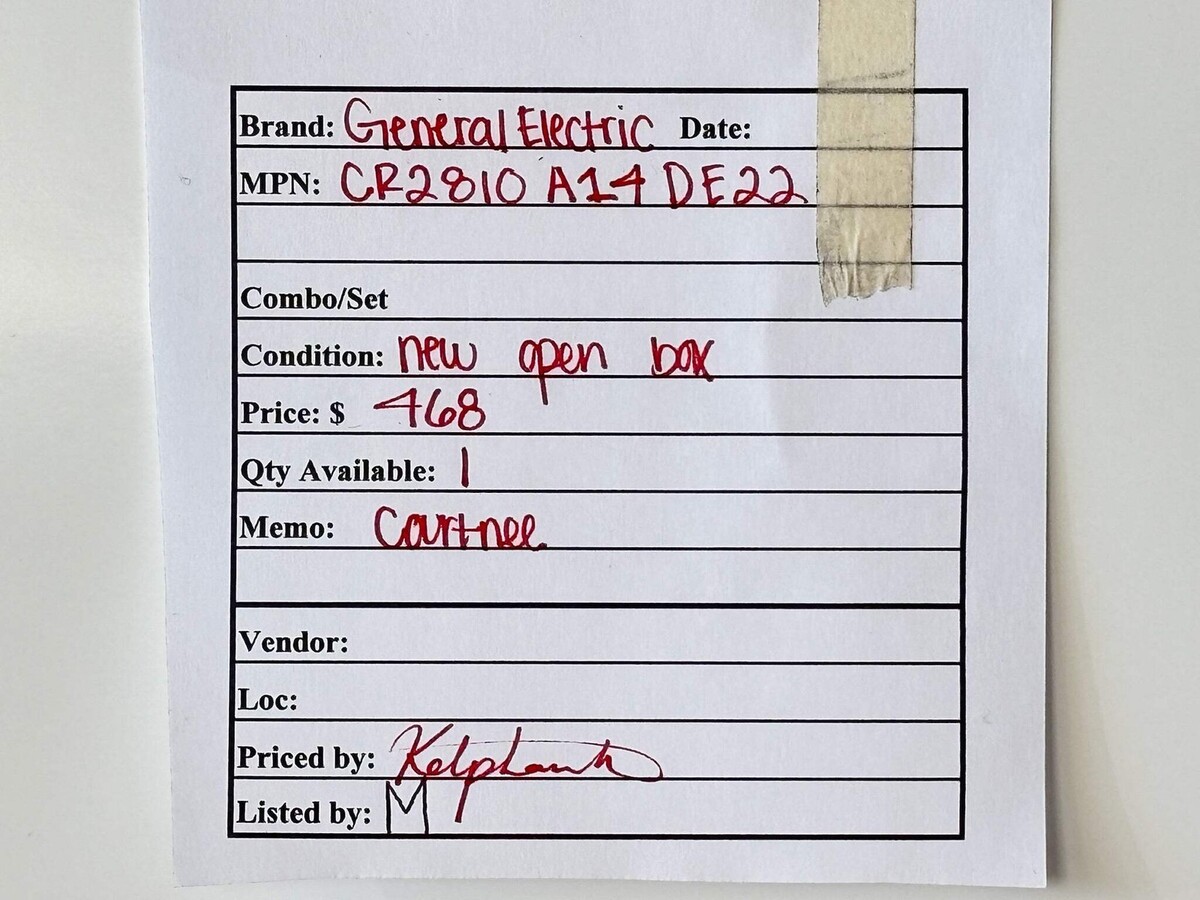 Brand: General Electric Date:
MPN: CR2810 A14 DE22
Combo/Set
Condition: new open box
Price: $ 468
Qty Available: 1
Memo: Courtnee
Vendor:
Loc:
Priced by:
Listed by: M